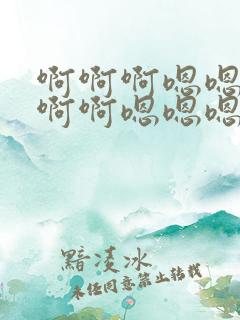 啊啊啊嗯嗯
啊啊嗯嗯嗯
黯凌冰
未经同意禁止转载